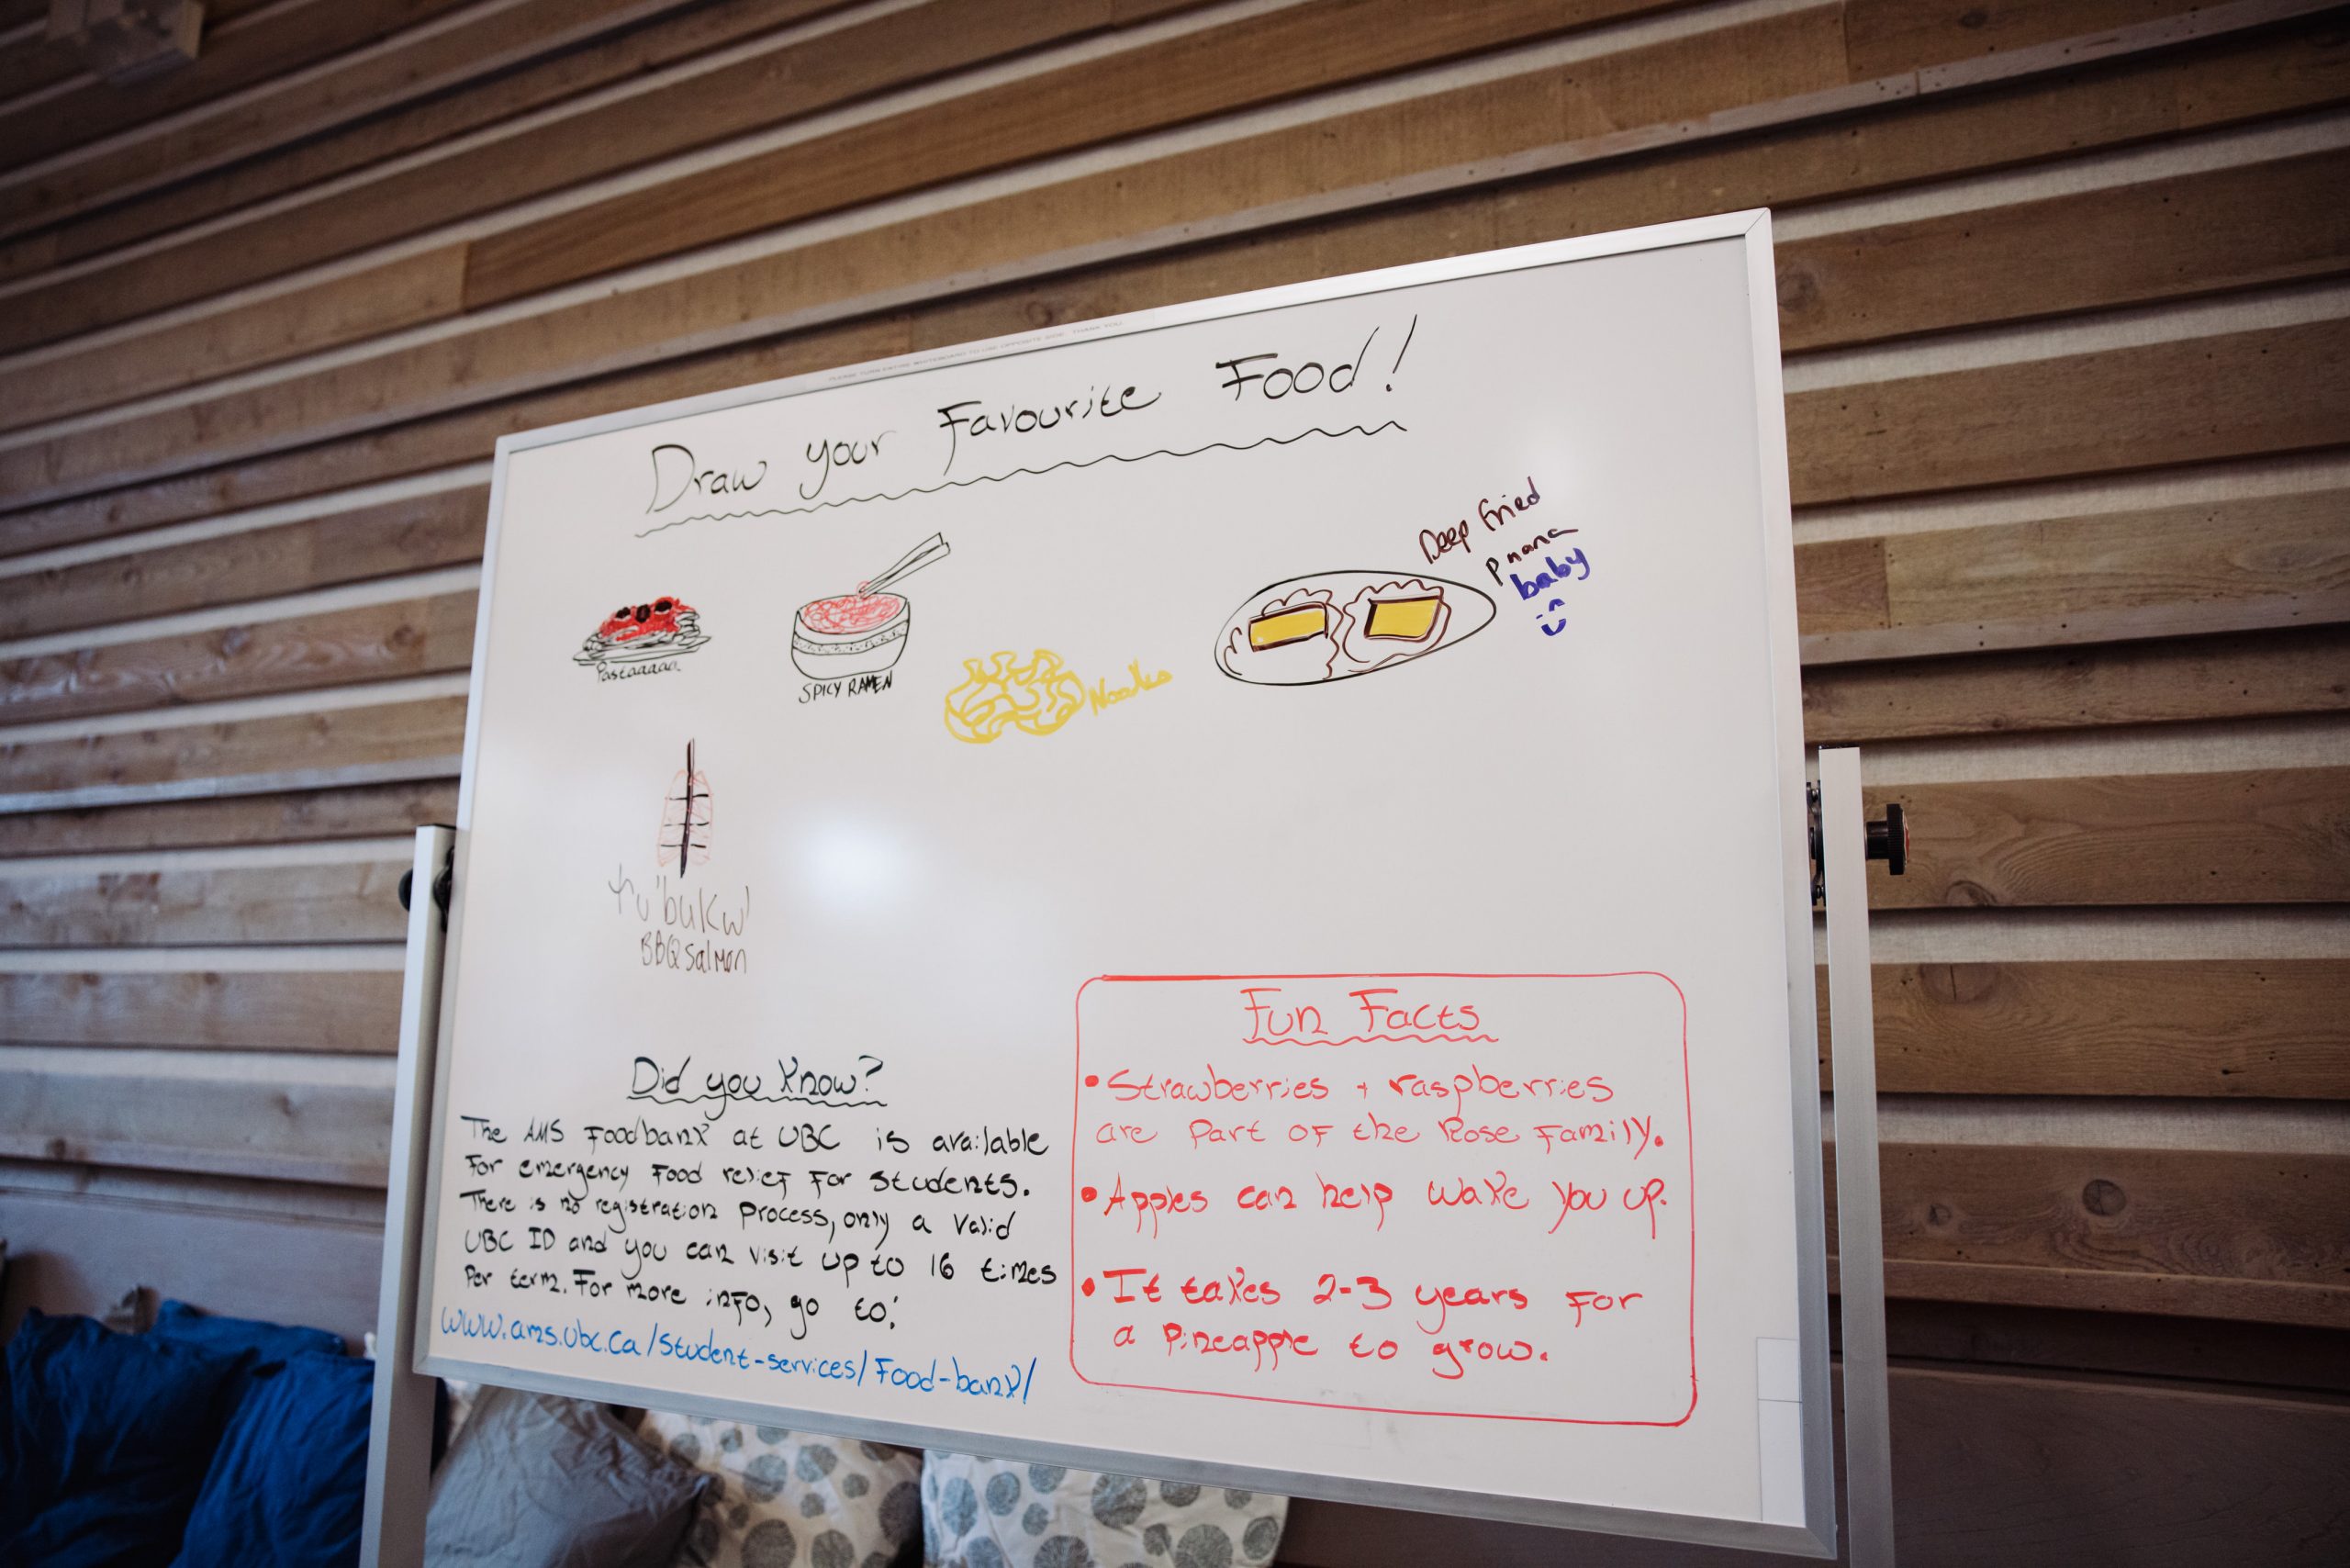 PLEASE TURN ENTIRE WHITEBOARD TO USE OPPOSITE SIDE. THANK YOU
Draw your Favourite Food!
Pastaaaaa
SPICY RAMEN
Noodles
Deep Fried
baby
BBQ Salmon
Did you know?
The AMS Foodbank at UBC is available
For emergency Food relief For students.
There is no registration process, only a valid
UBC ID and you can visit up to 16 times
Per term. For more info, go to:
www.ams.ubc.ca/student-services/Food-bank/
Fun Facts
• Strawberries + raspberries
are Part OF the Rose Family.
• Apples can help wake you up.
• It takes 2-3 years For
a Pineapple to grow.